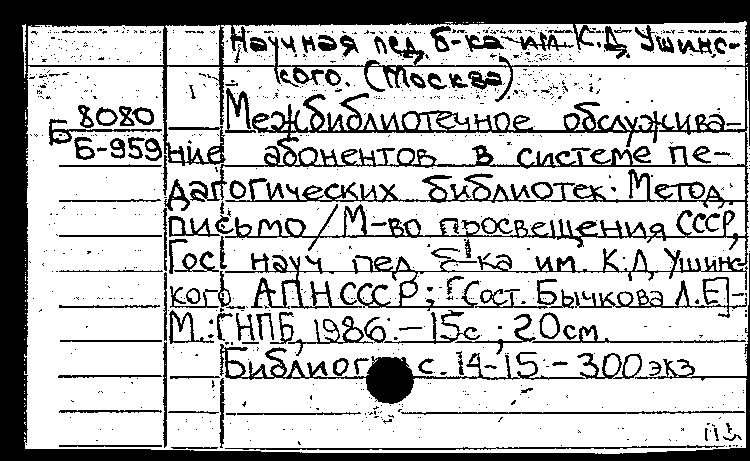 Научная пед. б-ка им. К.Д. Ушинс-
кого. (Москва)
Б 8080
Б-959
Межбиблиотечное обслужива-
ние абонентов в системе пе-
дагогических библиотек: Метод.
письмо / М-во просвещения СССР,
Гос. науч. пед. б-ка им. К.Д. Ушинс-
кого АПН СССР; [Сост. Бычкова Л.Е]-
М.: ГНПБ, 1986. - 15с ; 20см.
с. 14-15 - 300 экз.